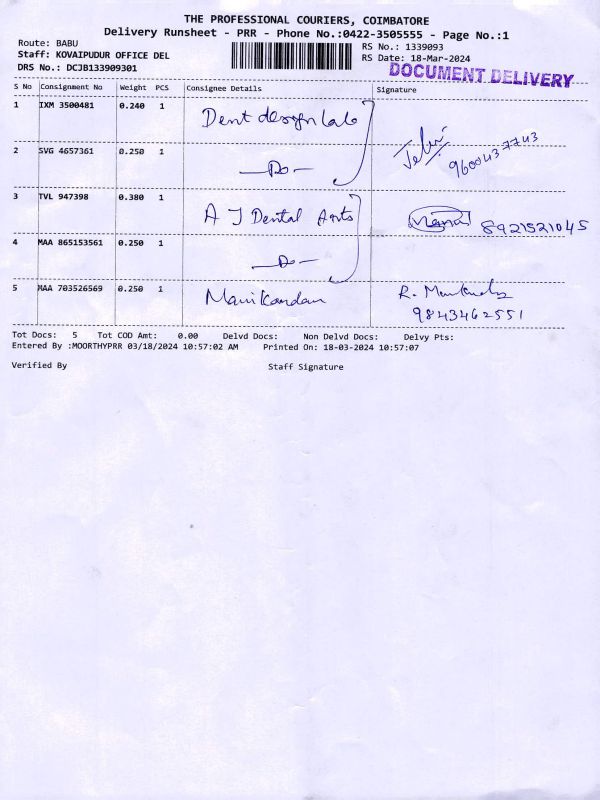 THE PROFESSIONAL COURIERS, COIMBATORE
Delivery Runsheet - PRR - Phone No.:0422-3505555 - Page No.:1
Route: BABU
Staff: KOVAIPUDUR OFFICE DEL
DRS No.: DCJB133909301
RS No.: 1339093
RS Date: 18-Mar-2024
DOCUMENT DELIVERY
S No Consignment No Weight PCS Consignee Details Signature
1 IXM 3500481 0.240 1 Dent design lab
2 SVG 4657361 0.250 1 —Do— 9600437743
3 TVL 947398 0.380 1 A J Dental Arts 8921521045
4 MAA 865153561 0.250 1 —Do—
5 MAA 703526569 0.250 1 Manikandan R.
9843462551
Tot Docs: 5 Tot COD Amt: 0.00 Delvd Docs: Non Delvd Docs: Delvy Pts:
Entered By :MOORTHYPRR 03/18/2024 10:57:02 AM Printed On: 18-03-2024 10:57:07
Verified By Staff Signature